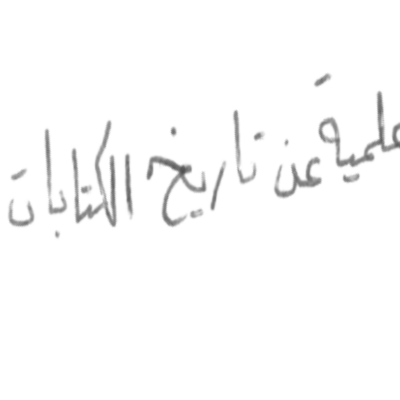 علمية عن تاريخ الكتابات